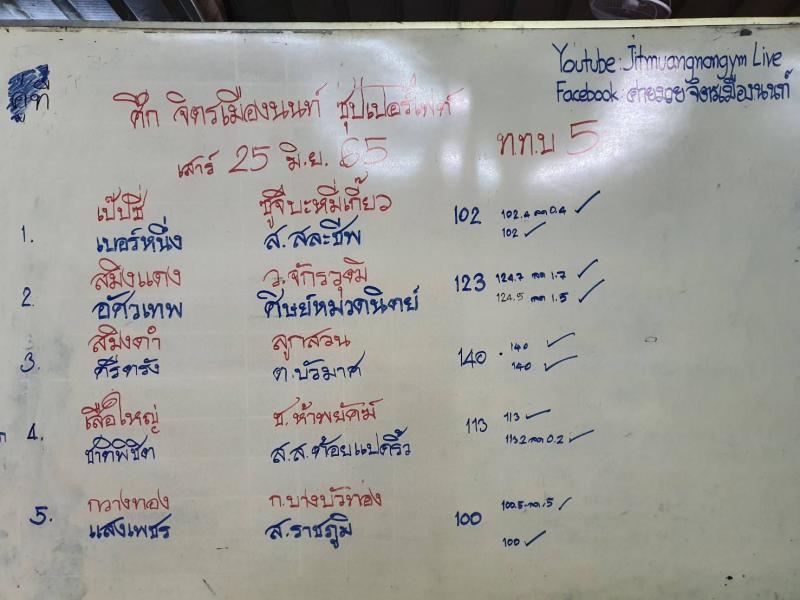 คู่ที่
Youtube: Jitmuangnongym Live
Facebook ค่ายมวย จิตรเมืองนนท์
ศึก จิตรเมืองนนท์ ซุปเปอร์ไฟท์
เสาร์ 25 มิ.ย. 65
ท.ท.บ 5
เป๊ปซี่ ซูจีบะหมี่เกี๊ยว 102 102.4 ลด 0.4 ✓
1. เบอร์หนึ่ง ส.สละชีพ 102 ✓
สมิงแดง ว.จักรวุฒิ 123 124.7 ลด 1.7 ✓
2. อัศวเทพ ศิษย์หมวดนิตย์ 124.5 ลด 1.5 ✓
สมิงดำ ลูกสวน 140 140 ✓
3. ศรีตรัง ต.บัวมาศ 140 ✓
เสือใหญ่ ช.ห้าพยัคฆ์ 113 113 ✓
4. ชาติพิชิต ส.ส.ต้อยแปดริ้ว 113.2 ลด 0.2 ✓
กวางทอง ก.บางบัวทอง 100 100.5 ลด .5 ✓
5. แสงเพชร ส.ราชภูมิ 100 ✓